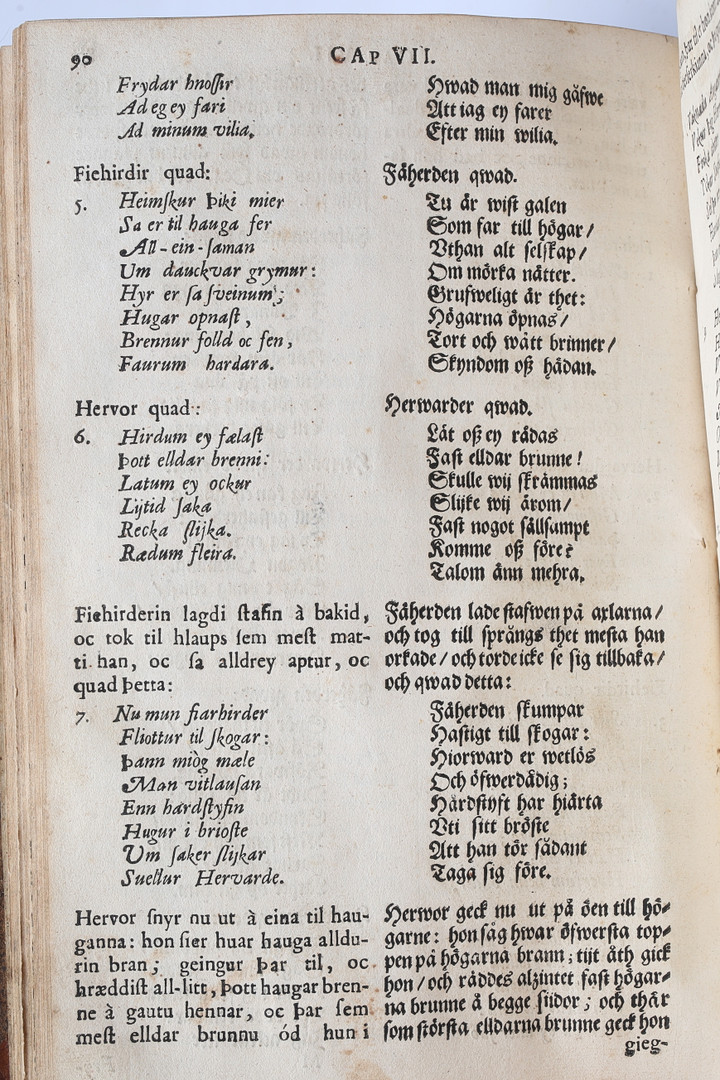 90
CAP VII.
Frydar hnoſſir
Ad eg ey fari
Ad minum vilia.
Fiehirdir quad:
5. Heimſkur Þiki mier
Sa er til hauga fer
All-ein-ſaman
Um dauckvar grymur:
Hyr er ſa ſveinum;
Hugar opnaſt,
Brennur folld oc fen,
Faurum hardara.
Hervor quad:
6. Hirdum ey fælaſt
Þott elldar brenni:
Latum ey ockur
Lijtid ſaka
Recka ſlijka.
Rædum fleira.
Fiehirderin lagdi ſtafin à bakid,
oc tok til hlaups ſem meſt mat-
ti han, oc ſa alldrey aptur, oc
quad Þetta:
7. Nu mun fiarhirder
Fliottur til ſkogar:
Þann miòg mæle
Man vitlauſan
Enn hardſtyfin
Hugur i brioſte
Um ſaker ſlijkar
Suellur Hervarde.
Hervor ſnyr nu ut à eina til hau-
ganna: hon ſier huar hauga alldu-
rin bran; geingur Þar til, oc
hræddiſt all-litt, Þott haugar bren-
ne à gautu hennar, oc Þar ſem
meſt elldar brunnu ód hun i
Hwad man mig gåfwe
Att iag ey farer
Efter min wilia.
Fäherden qwad.
Tu är wiſt galen
Som far till högar/
Vthan alt ſelſkap/
Om mörka nätter.
Grufweligt är thet:
Högarna öpnas/
Tort och wått brinner/
Skyndom oß hädan.
Herwarder qwad.
Låt oß ey rädas
Faſt elldar brunne!
Skulle wij ſkrämmas
Slijke wij ärom/
Faſt nogot ſällſampt
Komme oß före?
Talom änn mehra.
Fäherden lade ſtafwen på axlarna/
och tog till ſprångs thet meſta han
orkade/ och torde icke ſe ſig tillbaka/
och qwad detta:
Fäherden ſkumpar
Haſtigt till ſkogar:
Hiorward er wetlös
Och öfwerdådig;
Hårdſtyft har hiärta
Vti ſitt bröſte
Att han tör ſådant
Taga ſig före.
Herwor geck nu ut på öen till hö-
garne: hon ſåg hwar öfwerſta top-
pen på högarna brann; tijt åth gick
hon/ och räddes alzintet faſt högar-
na brunne å begge ſiidor; och thär
ſom ſtörſta elldarna brunne geck hon
gieg-